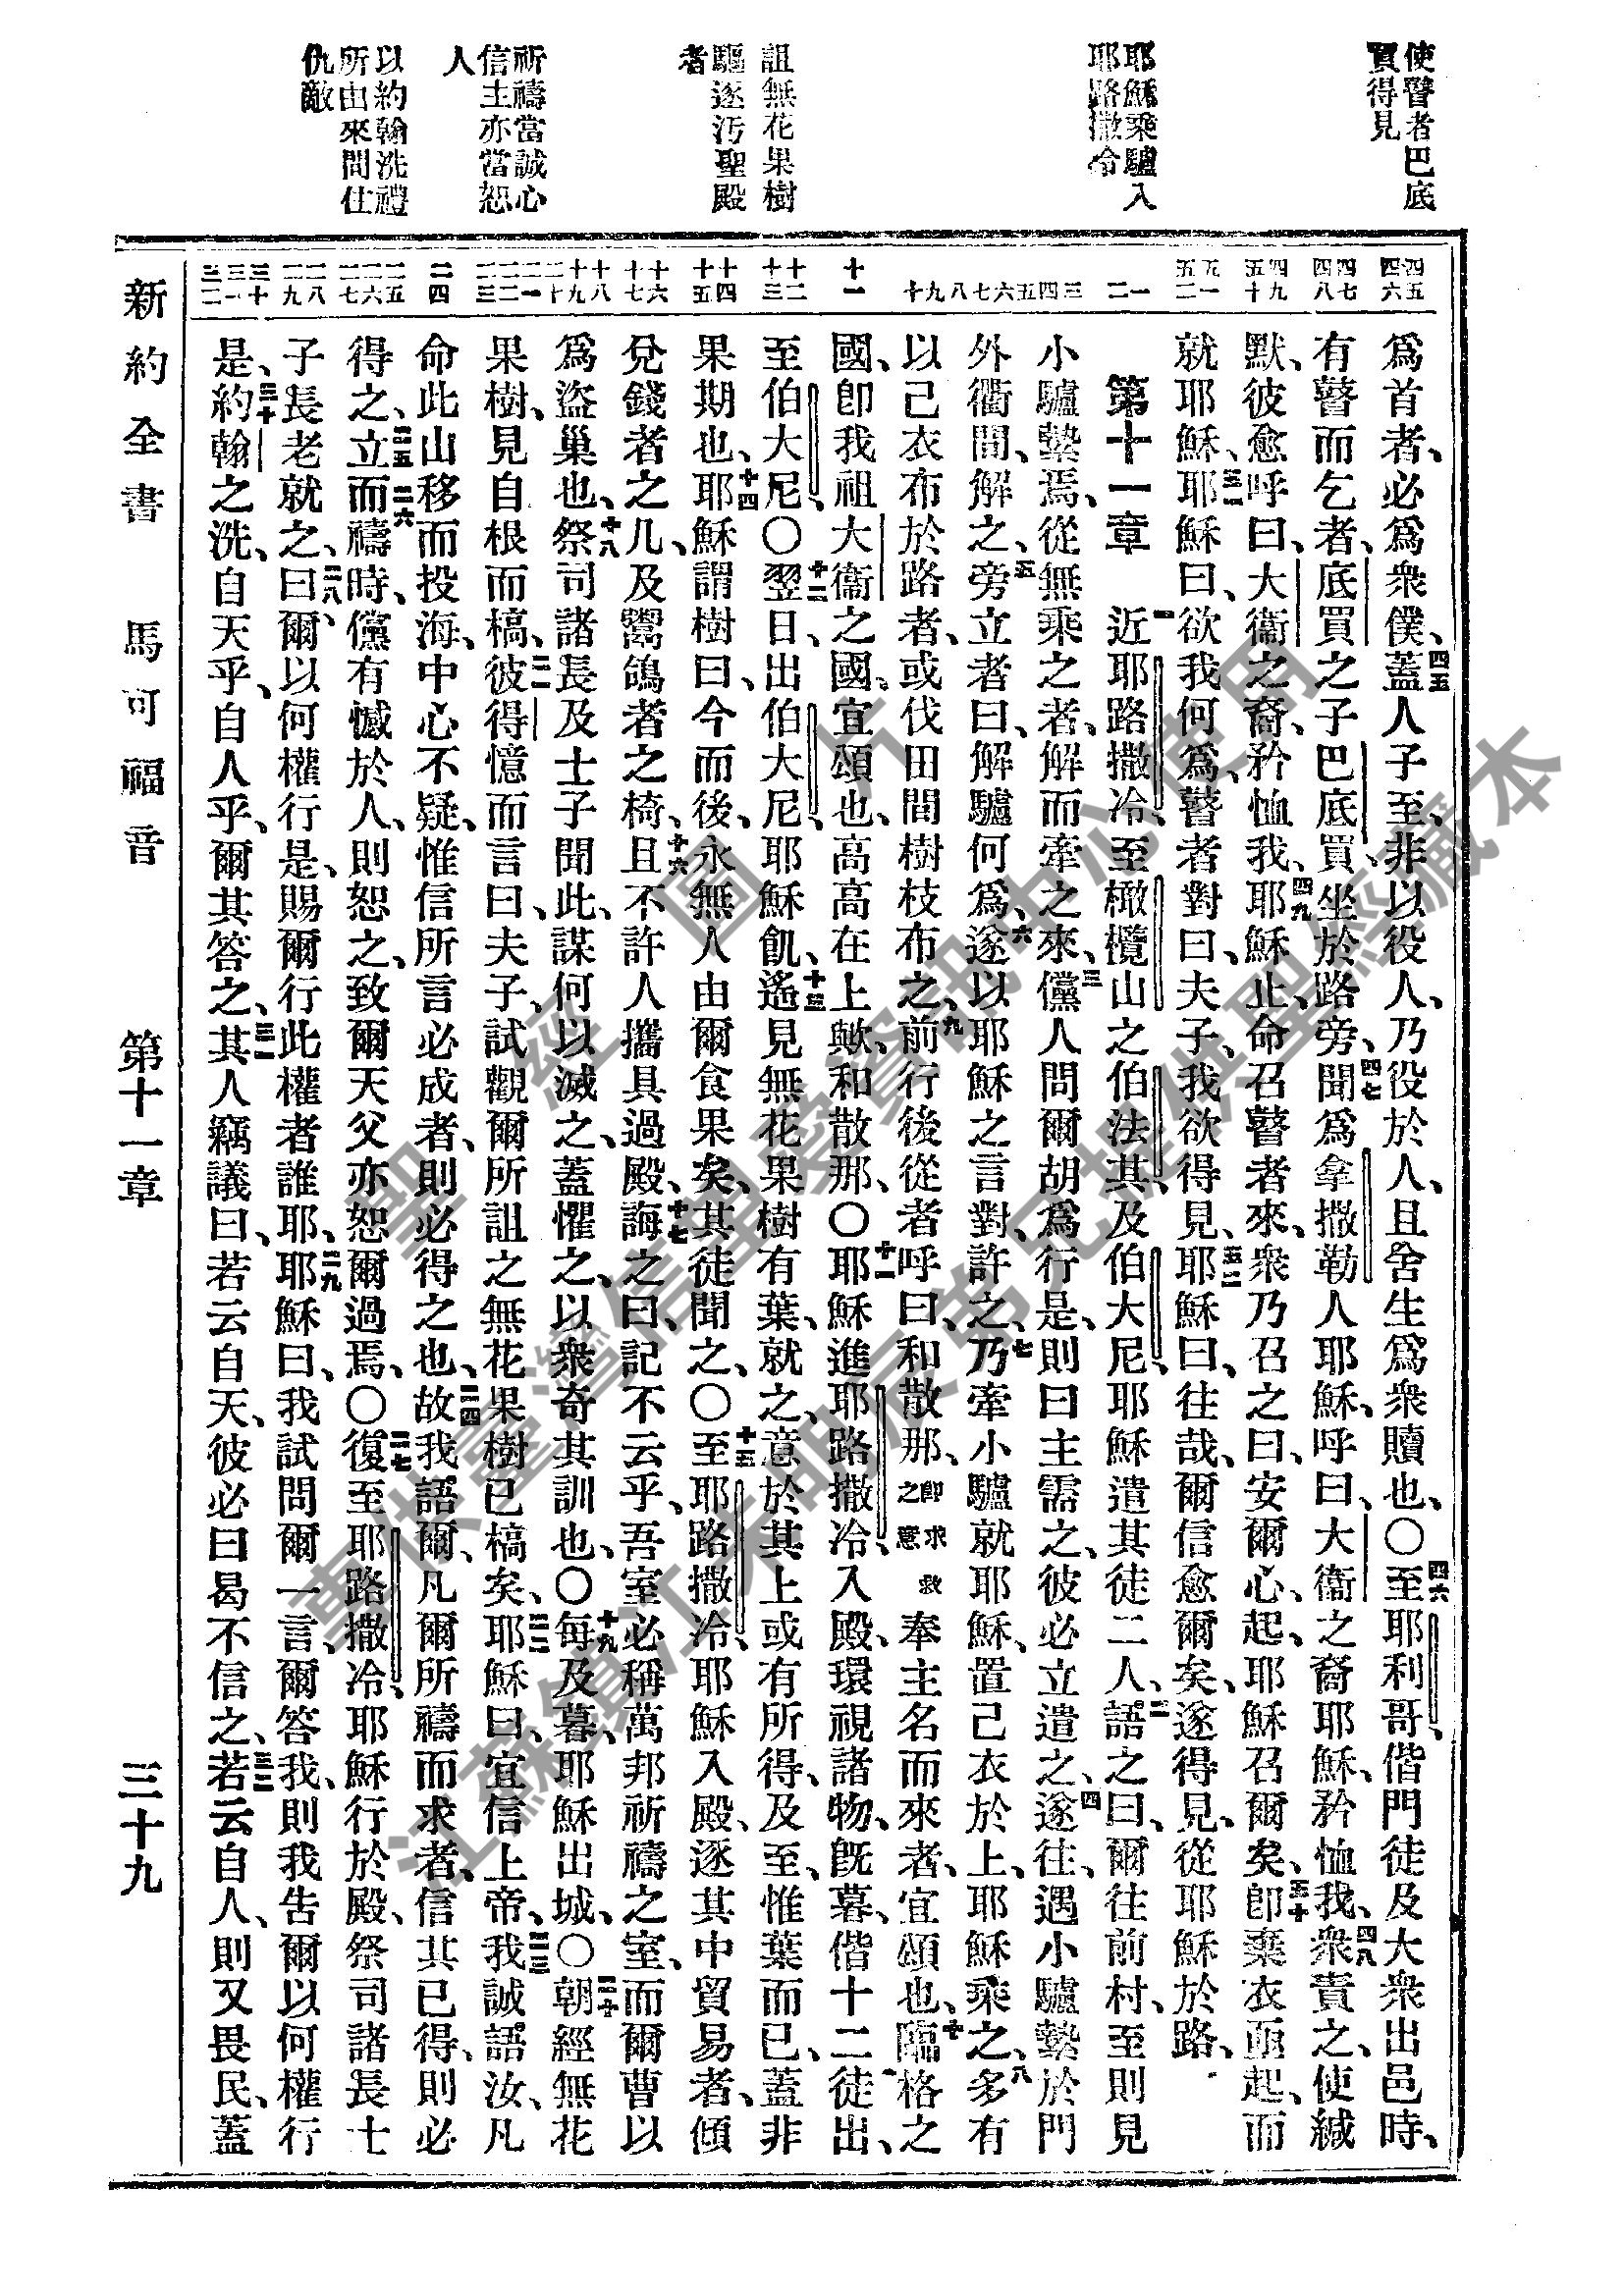 使瞽者巴底
買得見
耶穌乘驢入
耶路撒冷
詛無花果樹
驅逐汚聖殿
者
祈禱當誠心
信主亦當恕
人
以約翰洗禮
所由來問仕
仇敵
四五 四六
四七 四八
四九 五十
五一 五二
一 二
三 四 五
六 七 八
九 十
十一
十二 十三
十四 十五
十六 十七
十八 十九 二十
二一 二二 二三
二四
二五 二六 二七
二八 二九
三十 三一 三二
爲首者、必爲衆僕、四五蓋人子至、非以役人、乃役於人、且舍生爲衆贖也、〇四六至耶利哥、偕門徒及大衆出邑時、
有瞽而乞者、底買之子巴底買、坐於路旁、四七聞爲拿撒勒人耶穌、呼曰、大衞之裔耶穌、矜恤我、四八衆責之、使緘
默、彼愈呼曰、大衞之裔、矜恤我、四九耶穌止、命召瞽者來、衆乃召之曰、安爾心、起、耶穌召爾矣、五十卽棄衣亟起、而
就耶穌、五一耶穌曰、欲我何爲、瞽者對曰、夫子、我欲得見、五二耶穌曰、往哉、爾信愈爾矣、遂得見、從耶穌於路、
第十一章 一近耶路撒冷、至橄欖山之伯法其、及伯大尼、耶穌遣其徒二人、二語之曰、爾往前村、至則見
小驢縶焉、從無乘之者、解而牽之來、三儻人問爾胡爲行是、則曰主需之、彼必立遣之、四遂往、遇小驢縶於門
外衢間、解之、五旁立者曰、解驢何爲、六遂以耶穌之言對、許之、七乃牽小驢就耶穌、置己衣於上、耶穌乘之、八多有
以己衣布於路者、或伐田間樹枝布之、九前行後從者呼曰、和散那、卽求救之意奉主名而來者、宜頌也、十臨格之
國、卽我祖大衞之國、宜頌也、高高在上歟、和散那、〇十一耶穌進耶路撒冷、入殿、環視諸物、旣暮、偕十二徒出、
至伯大尼、〇十二翌日、出伯大尼、耶穌飢、十三遙見無花果樹有葉、就之、意於其上或有所得、及至、惟葉而已、蓋非
果期也、十四耶穌謂樹曰、今而後、永無人由爾食果矣、其徒聞之、〇十五至耶路撒冷、耶穌入殿、逐其中貿易者、傾
兌錢者之几、及鬻鴿者之椅、十六且不許人攜具過殿、十七誨之曰、記不云乎、吾室必稱萬邦祈禱之室、而爾曹以
爲盜巢也、十八祭司諸長及士子聞此、謀何以滅之、蓋懼之、以衆奇其訓也、〇十九每及暮、耶穌出城、〇二十朝經無花
果樹、見自根而槁、二一彼得憶而言曰、夫子、試觀爾所詛之無花果樹已槁矣、二二耶穌曰、宜信上帝、二三我誠語汝、凡
命此山移而投海、中心不疑、惟信所言必成者、則必得之也、二四故我語爾、凡爾所禱而求者、信其已得、則必
得之、二五立而禱二六時、儻有憾於人、則恕之、致爾天父亦恕爾過焉、〇二七復至耶路撒冷、耶穌行於殿、祭司諸長士
子長老就之、二八曰、爾以何權行是、賜爾行此權者誰耶、二九耶穌曰、我試問爾一言、爾答我、則我告爾以何權行
是、三十約翰之洗、自天乎、自人乎、爾其答之、三一其人竊議曰、若云自天、彼必曰曷不信之、三二若云自人、則又畏民、蓋
新約全書 馬可福音 第十一章 三十九
聖經圖片
專供臺灣信望愛資訊中心使用
江蘇鎮江朱明辰弟兄提供聖經藏本